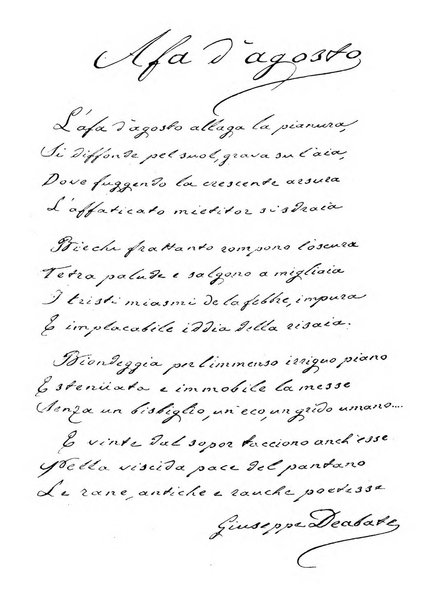 Afa d'agosto
L'afa d'agosto allaga la pianura,
Si diffonde pel suol, grava su l'aia,
Dove fuggendo la crescente arsura
L'affaticato mietitor si sdraia
Biechi frattanto rompono l'oscura
Tetra palude e salgono a migliaia
I tristi miasmi de la febbre, impura
E implacabile iddia della risaia.
Biondeggia per l'immenso irriguo piano
Estenuata e immobile la messe
Senza un bisbiglio, un'eco, un grido umano....
E vinte dal sopor tacciono anch'esse
Nella viscida pace del pantano
Le rane, antiche e rauche poetesse
Giuseppe Deabate